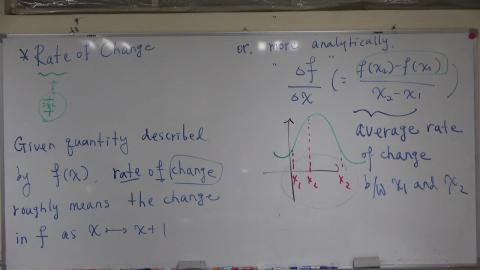 * Rate of Change
Given quantity described
by f(x), rate of change
roughly means the change
in f as x ↦ x+1
or, more analytically,
" Δf/Δx " (= f(x₂)-f(x₁)/x₂-x₁)
average rate
of change
b/w x₁ and x₂
x₁ x₂ x₂